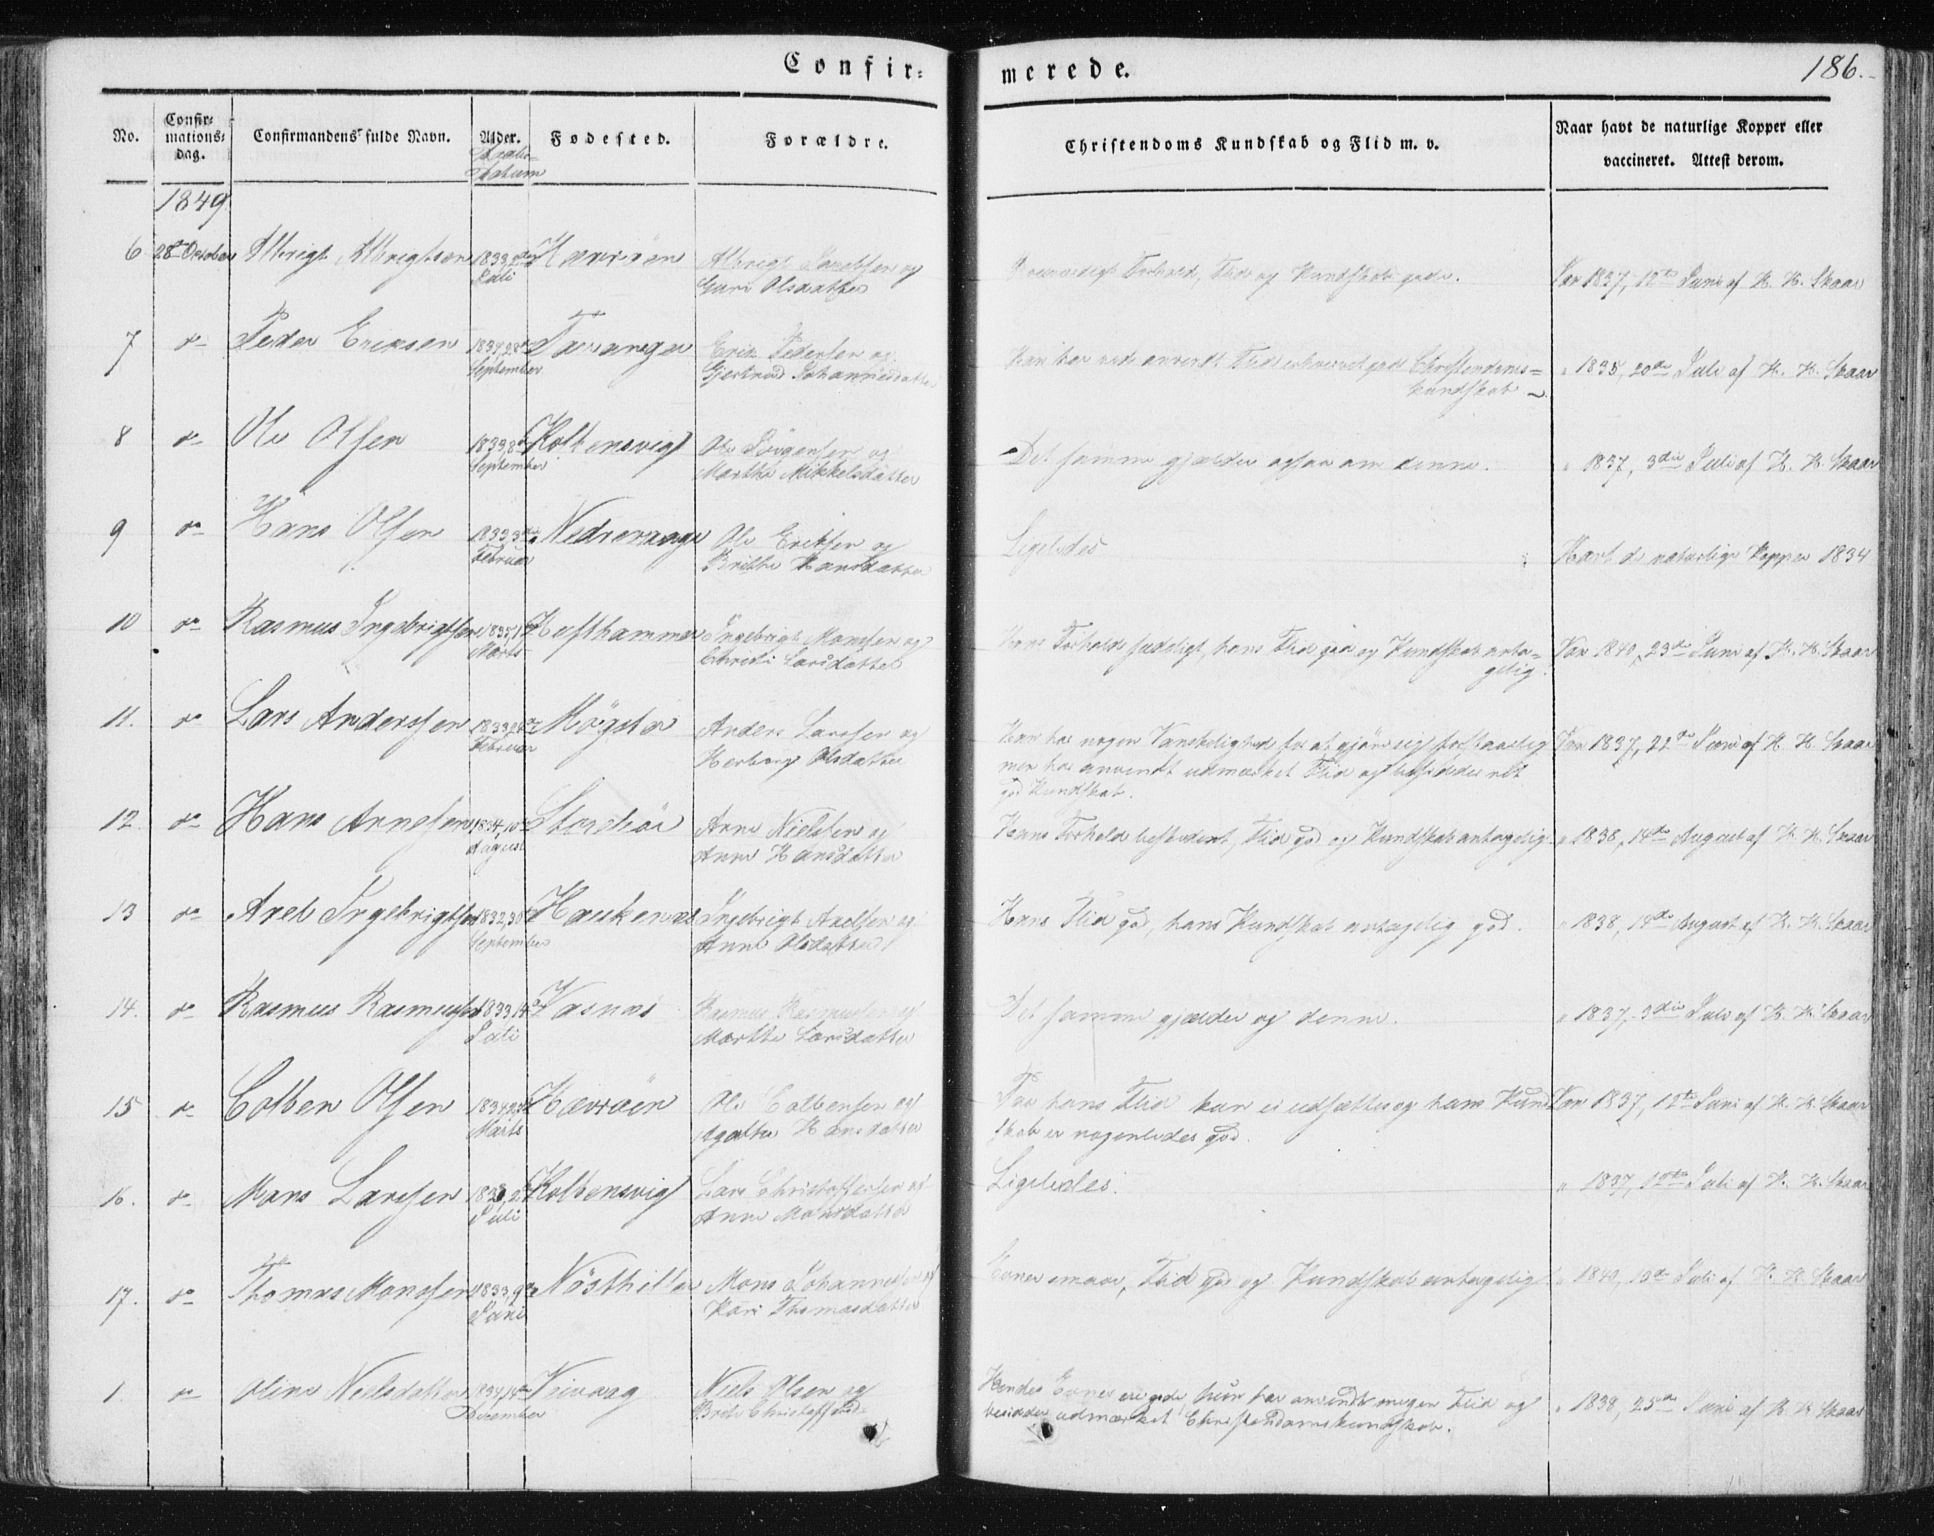 Confir=
merede.
186.
No.
Confir=
mations=
dag.
Confirmandens fulde Navn.
Alder.
Fødested.
Forældre.
Christendoms Kundskab og Flid m. v.
Naar havt de naturlige Kopper eller
vaccineret. Attest derom.
Datum
1849
6 28de October Albrigt Albrigtsen 1833 Juli Hævrøen
Albrigt Jacobsen og
Guri Olsdatter
Forhold, Flid og Kundskab gode.
Vac 1837, 12te Juni af H. H. Skaar
7 do Peder Eriksen 1834, 28de September Taranger
Erik Pedersen og
Gjertrud Johannesdatter
Han har ved anvendt Flid erhvervet god Christendoms=
kundskab
" 1835, 20de Juli af H. H. Skaar
8 do Ole Olsen 1833, 8de September Kolbensvig
Ole Jørgensen og
Marthe Mikkelsdatter
Det samme gjælder ogsaa om denne.
" 1837, 3die Juli af H. H. Skaar
9 do Hans Olsen 1833, 3die Februar Nedrevaage
Ole Eriksen og
Brithe Hansdatter
Ligeledes
Havt de naturlige Kopper 1834
10 do Rasmus Ingebrigtsen Marts Hufthammer
Ingebrigt Monsen og
Christi Larsdatter
Hans Forhold sædeligt, hans Flid god og Kundskab anta=
gelig.
Vac 1840, 23de Juni af H. H. Skaar
11. do Lars Anderssen 1833 Februar Møgster
Anders Larssen og
Herborg Olsdatter
Han har nogen Vanskelighed for at gjøre sig forstaaelig
men har anvendt udmærket Flid og besidder ret
god Kundskab.
Vac 1837, 22de Juni af H. H. Skaar
12. do Hans Arnesen 1834, 10de August Storekor
Arne Nielsen og
Anne Hansdatter
Hans Forhold beskedent, Flid god og Kundskab antagelig.
" 1838, 14de August af H. H. Skaar
13 do Axel Ingebrigtsen 1832, 30 September Haukenæs
Ingebrigt Axelsen og
Anne Olsdatter
Hans Flid god, hans Kundskab antagelig god.
" 1838, 14de August af H. H. Skaar
14. do Rasmus Rasmussen 1833, 14de Juli Vasnæs
Rasmus Rasmussen og
Marthe Larsdatter
Det samme gjælder og denne.
" 1837, 3die Juli af H. H. Skaar
15 do Colben Olsen 1834 Marts Hævrøen
Ole Colbensen og
Agathe Hansdatter
Paa hans Flid kan ei udsættes og hans Kund
skab er nogenledes god.
Vac 1837, 12te Juni af H. H. Skaar
16. do Mons Larssen Juli Kolbensvig
Lars Christoffersen og
Anne Monsdatter
Ligeledes.
" 1837, 12te Juli af H. H. Skaar
17. do Thomas Monsen 1833, 9de Juni Nøsthille
Mons Johannessen og
Kari Thomasdatter
Evner smaae, Flid god og Kundskab antagelig
" 1840, 10de Juli af H. H. Skaar
1. do Oline Nielsdatter 1834, 14de December Veivaag
Niels Olsen og
Brite Christoffersd:
Hendes Evner ere gode, hun har anvendt megen Flid og
besidder udmærket Christendomskundskab.
" 1838, 25de Juni af H. H. Skaar